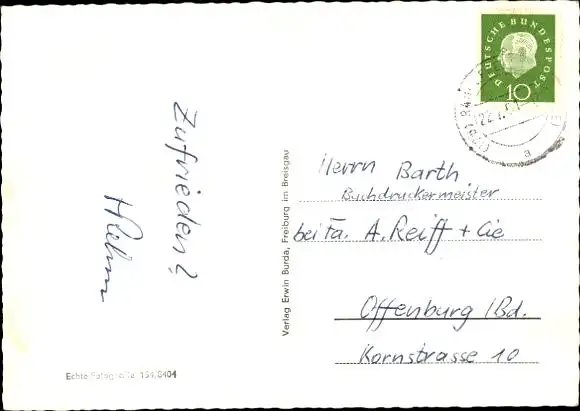 DEUTSCHE BUNDESPOST
10
Zufrieden?
Herrn Barth
Buchdruckermeister
bei Fa. A. Reiff + Cie
Offenburg / Bd.
Kornstrasse 10
Verlag Erwin Burda, Freiburg im Breisgau
Echte Fotografie 154/8404